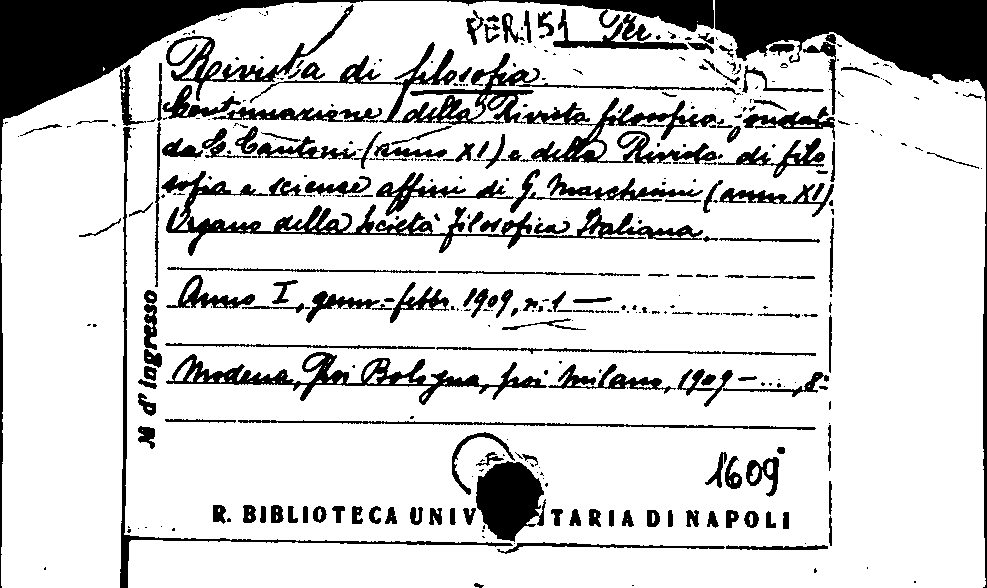 PER.151 Per.
Rivista di filosofia
Continuazione della Rivista filosofica fondata
da C. Cantoni (anno XI) e della Rivista di filo-
sofia e scienze affini di G. Marchesini (anno XI).
Organo della Società Filosofica Italiana.
Anno I, genn.-febbr. 1909, n. 1 — ....
Modena, poi Bologna, poi Milano, 1909 - ...., 8°
N d'ingresso
1609
R. BIBLIOTECA UNIV ITARIA DI NAPOLI